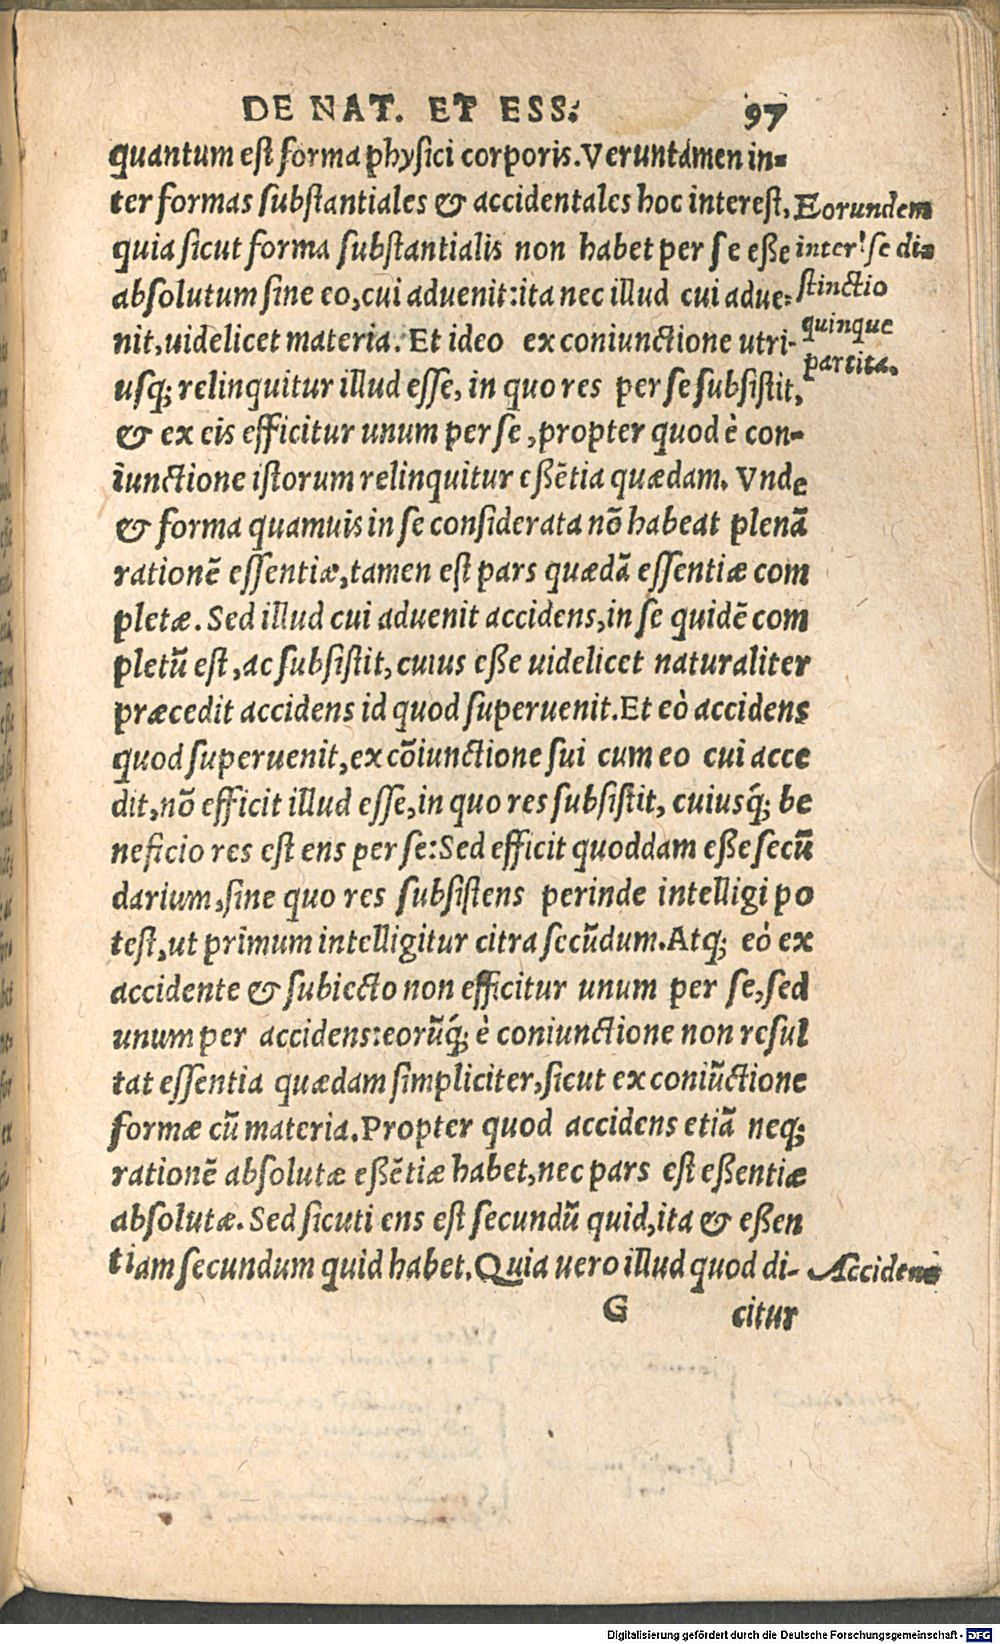 DE NAT. ET ESS. 97
quantum est forma physici corporis. Veruntamen in-
ter formas substantiales & accidentales hoc interest,
quia sicut forma substantialis non habet per se eße
absolutum sine eo, cui aduenit: ita nec illud cui adue-
nit, uidelicet materia. Et ideo ex coniunctione utri-
usq; relinquitur illud esse, in quo res per se subsistit,
& ex eis efficitur unum per se, propter quod è con-
iunctione istorum relinquitur eßētia quædam. Vnde
& forma quamuis in se considerata nō habeat plenā
rationē essentiæ, tamen est pars quædā essentiæ com
pletæ. Sed illud cui aduenit accidens, in se quidē com
pletū est, ac subsistit, cuius eße uidelicet naturaliter
præcedit accidens id quod superuenit. Et eò accidens
quod superuenit, ex cōiunctione sui cum eo cui acce
dit, nō efficit illud esse, in quo res subsistit, cuiusq́; be
neficio res est ens per se: Sed efficit quoddam eße secū
darium, sine quo res subsistens perinde intelligi po
test, ut primum intelligitur citra secūdum. Atq; eò ex
accidente & subiecto non efficitur unum per se, sed
unum per accidens: eorūq́; è coniunctione non resul
tat essentia quædam simpliciter, sicut ex coniūctione
formæ cū materia. Propter quod accidens etiā neq;
rationē absolutæ eßētiæ habet, nec pars est eßentiæ
absolutæ. Sed sicuti ens est secundū quid, ita & eßen
tiam secundum quid habet. Quia vero illud quod di-
G citur
Eorundem
inter se di-
stinctio
quinque
partita.
Accidens
Digitalisierung gefördert durch die Deutsche Forschungsgemeinschaft - DFG